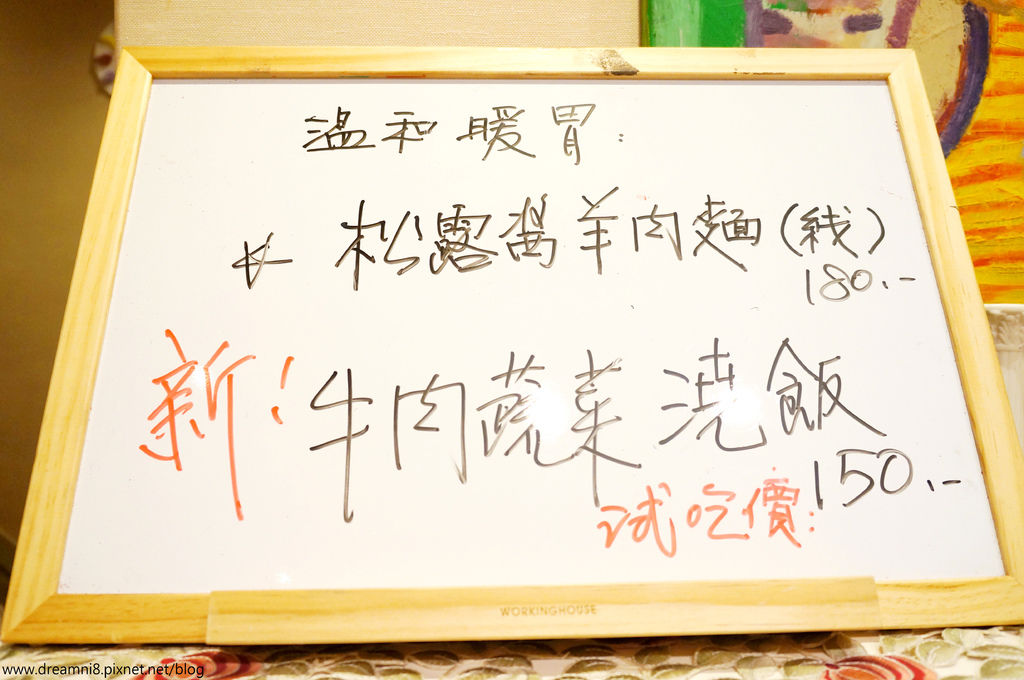 溫和暖胃:
松露醬羊肉麵(線)
180.-
新!牛肉蔬菜澆飯
150.-
試吃價:
WORKINGHOUSE
www.dreamni8.pixnet.net/blog